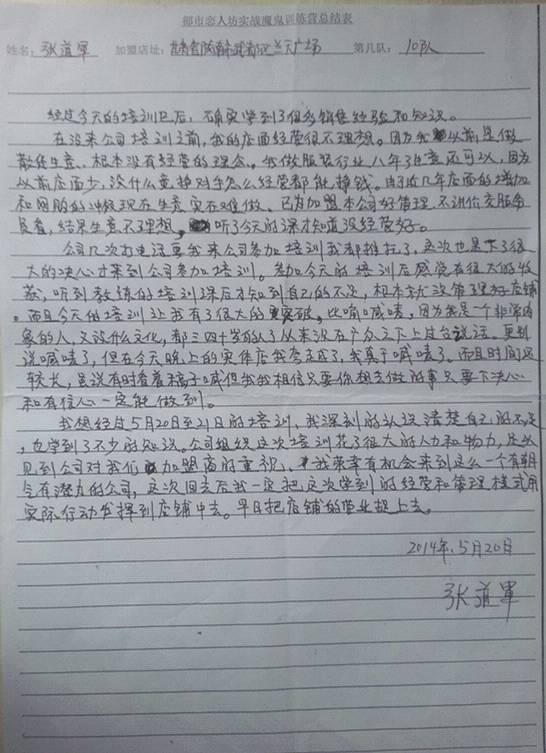 都市恋人坊实战魔鬼训练营总结表
姓名：张道军 加盟店址：甘肃省陇南市武都区兰天广场 第几队：10队
经过今天的培训以后，确实学到了很多销售经验和知识。
在没来公司培训之前，我的店面经营很不理想。因为我以前是做
散货生意、根本没有经营的理念。我做服装行业八年了生意还可以，因为
以前店面少，没什么竞争对手怎么经营都能挣钱。由于近几年店面的增加
和网购的冲级现在生意实在难做、已为加盟本公司好管理，不讲价交服务
质量，结果生意不理想。听了今天的课才知道没经营好。
公司几次打电话要我来公司参加培训我都推托了，这次也是下了很
大的决心才来到公司参加培训。参加今天的培训后感觉有很大的收
获，听到教练的培训课后才知到自己的不足，根本就没管理好店铺
。而且今天的培训让我有了很大的突破。比喻喊唛，因为我是个非常内
象的人，又没什么文化，都三四十岁的人了从来没在广众之下上过台说话。更别
说喊唛了，但在今天晚上的实体店我李志成了，我真于喊唛了，而且时间还
较长，虽说有时看着稿子喊但我我相信只要你想去做的事只要下决心
和有信心一定能做到。
我想经过5月20日至21日的培训，我深刻的认识清楚自己的不足
，也学到了不少的知识。公司组织这次培训花了很大的人力和物力，足以
见到公司对我们加盟商的重视、我荣幸有机会来到这么一个有朝
令有潜力的公司，这次回去后我一定把这次学到的经营和管理模式用
实际行动发挥到店铺中去。早日把店铺的营业提上去。
2014年.5月20日
张道军